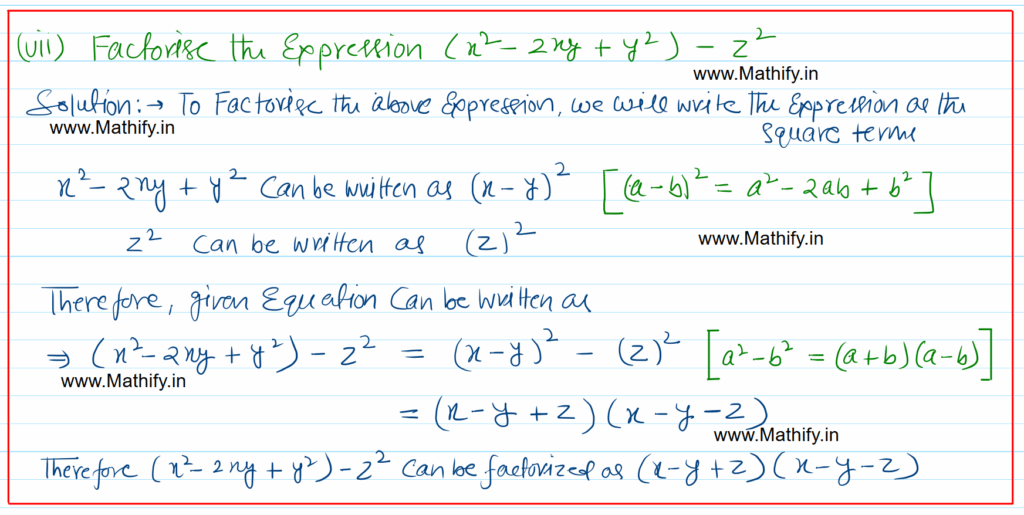 (vii) Factorise the Expression (x² - 2xy + y²) - z²
www.Mathify.in
Solution:→ To Factorise the above Expression, we will write the Expression as the
www.Mathify.in
square terms
x² - 2xy + y² Can be written as (x - y)² [(a - b)² = a² - 2ab + b²]
z² Can be written as (z)²
www.Mathify.in
Therefore, given Equation Can be written as
⇒ (x² - 2xy + y²) - z² = (x - y)² - (z)² [a² - b² = (a + b)(a - b)]
www.Mathify.in
= (x - y + z) (x - y - z)
www.Mathify.in
Therefore (x² - 2xy + y²) - z² Can be factorized as (x - y + z) (x - y - z)